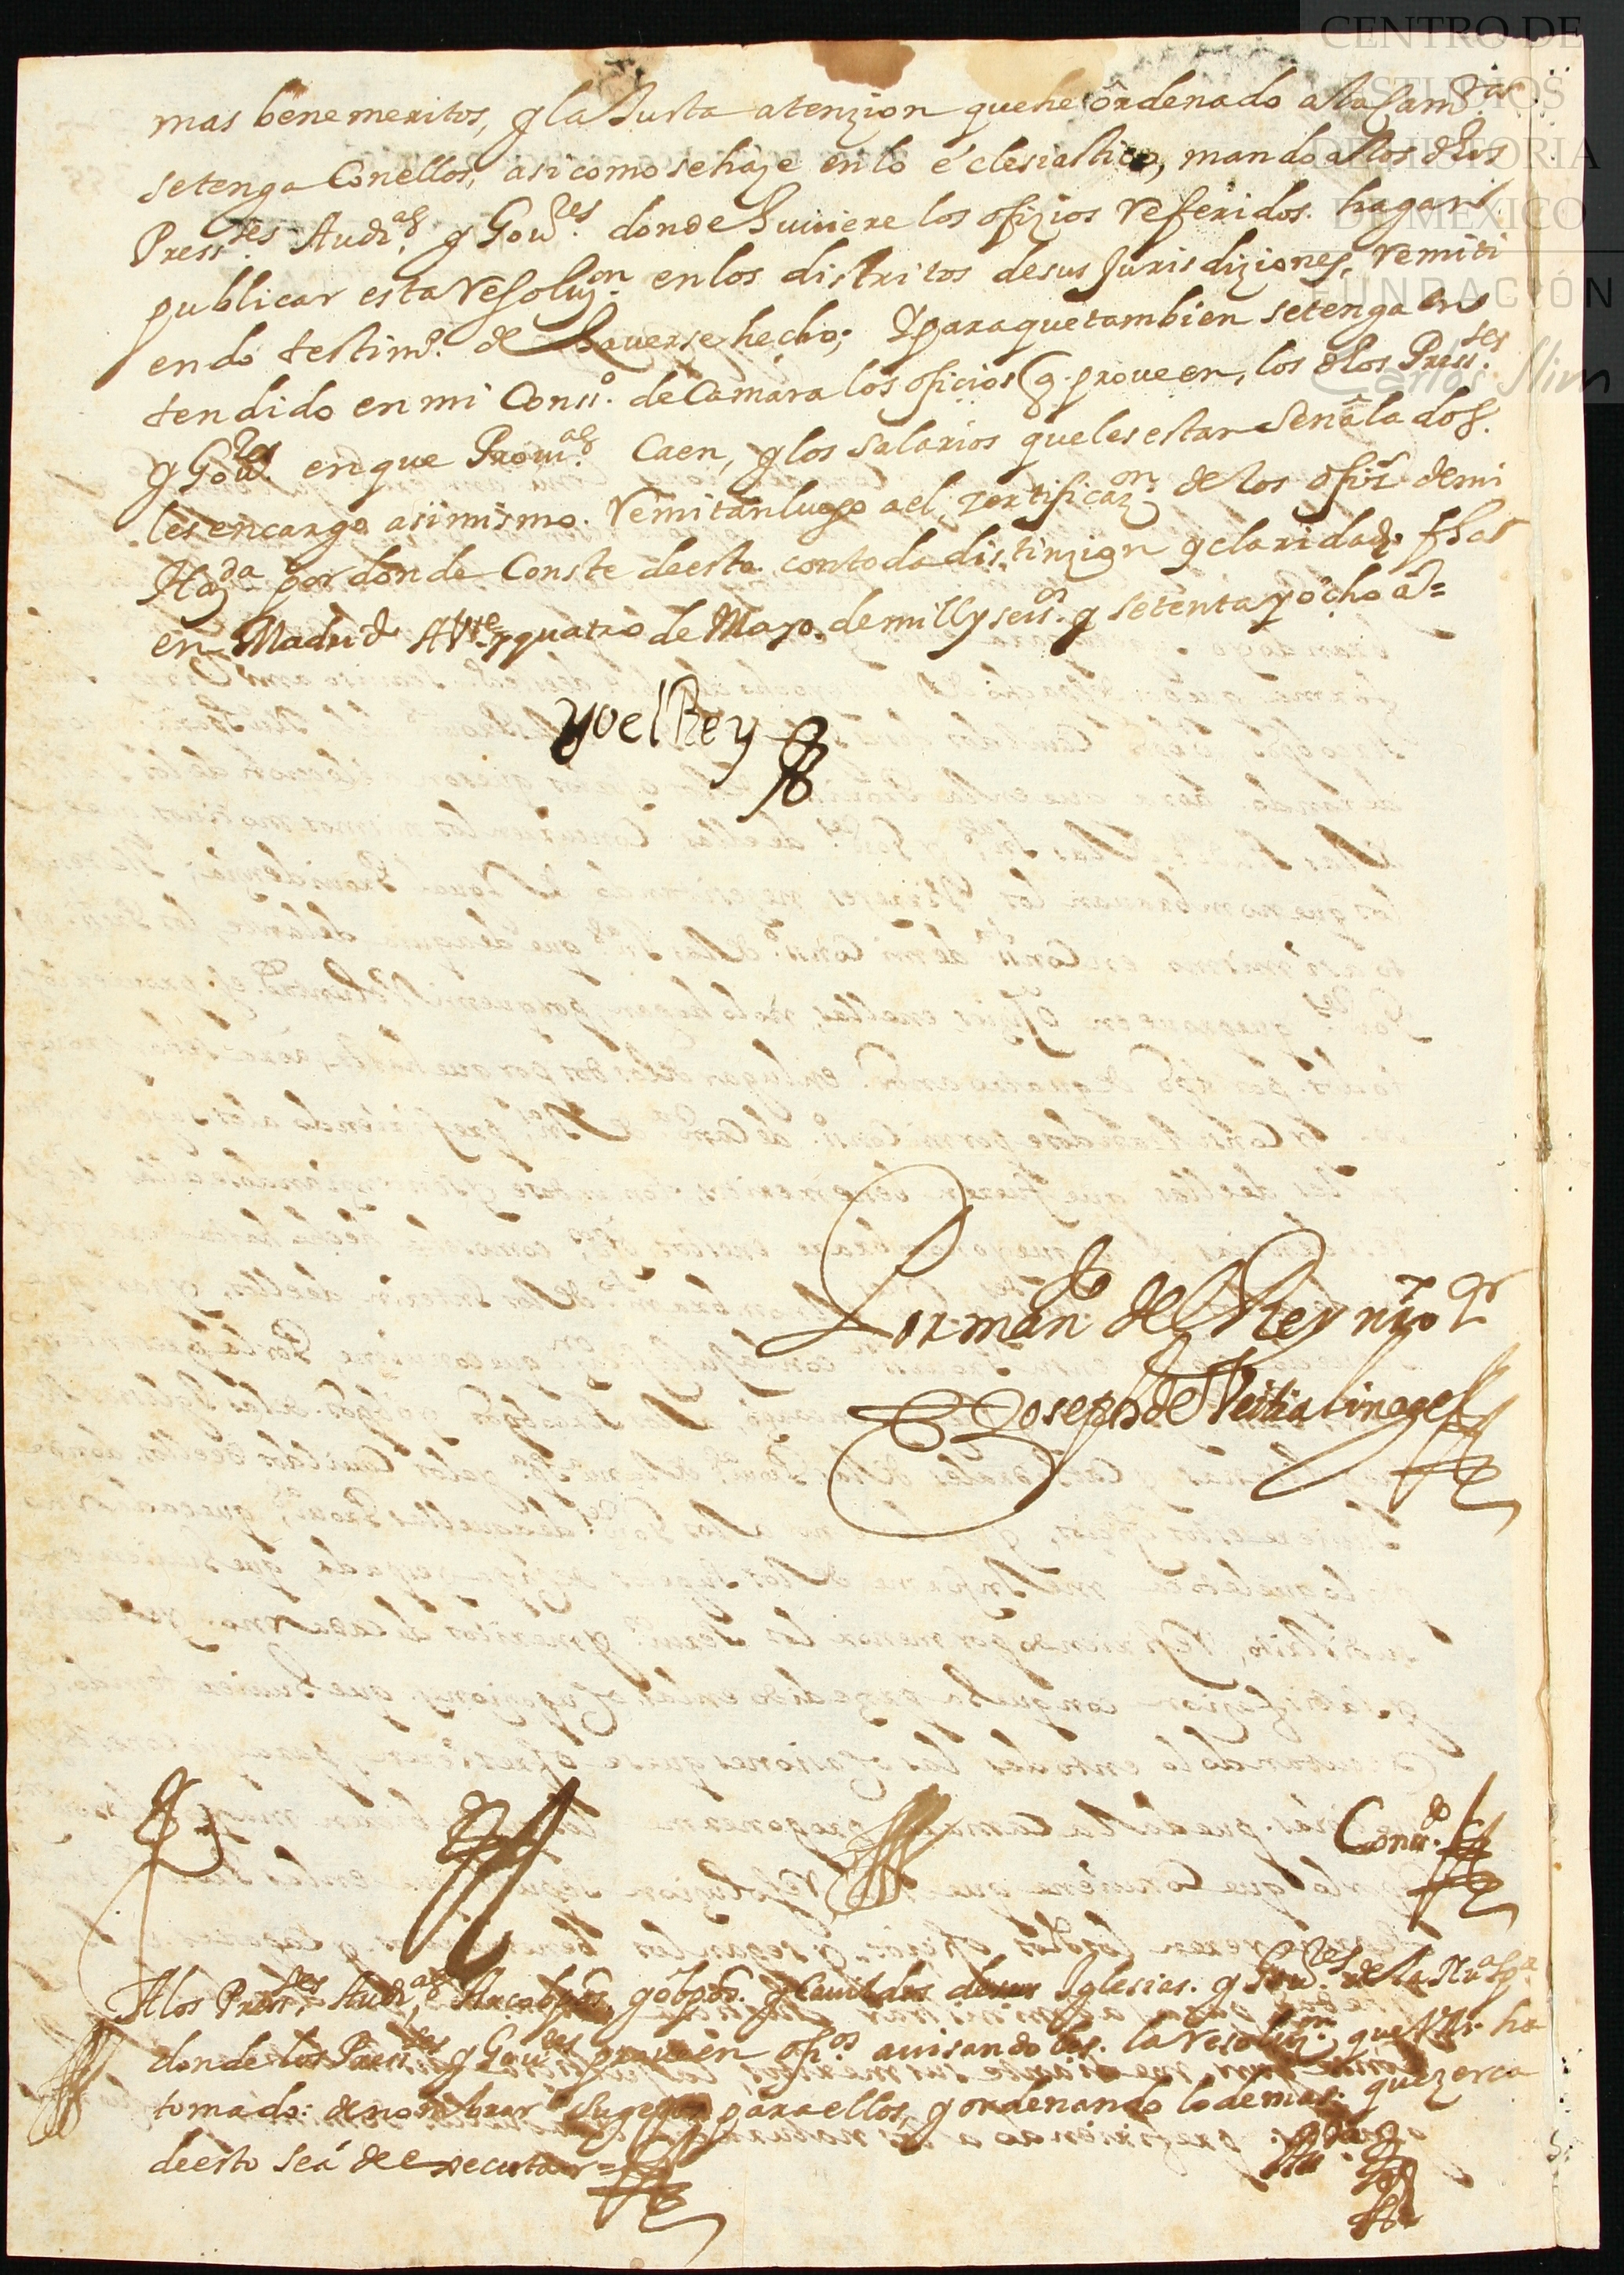 CENTRO DE
ESTUDIOS
DE HISTORIA
DE MÉXICO
FUNDACIÓN
Carlos Slim
mas bene meritos, y la Justa atenzion que he ordenado a la Cam.ra
se tenga Con ellos, asi como se haze en lo eclesiastico, mando a los dhos
Press.tes Aud.as y Gou.res donde huuiere los ofizios referidos. hagan
publicar esta resoluz.on en los distritos de sus Jurisdiziones, remiti
endo testim.o de hauerse hecho; Y para que tambien se tenga en
tendido en mi Conss.o de Camara los oficios q. proueen, los dhos Press.tes
y Gou.res en que Prouin.as Caen, y los salarios que les estan señalados.
les encargo asimismo. remitan luego a el, zertificaz.on de los ofiz.s de mi
Haz.da por donde Conste de esto con toda distinzion y claridad. fha
en Madrid A Vte y quatro de Mayo. de mill y seis.os y setenta y ocho a.s=
yo el Rey
Por man.do del Rey nro s.r
Joseph de Veitia linage
Conss.do
A los Press.tes Aud.as Arcobpos. y obpos. y Cauildos de sus Iglesias. y Gou.res de la Nu.a Sp.a
donde los Press.tes y Gou.res proueen ofi.os auisandoles. la resoluz.on que V.M. ha
tomado: de nombrar Sugetos para ellos, y ordenando lo demas. que zerca
de esto se á de executar=